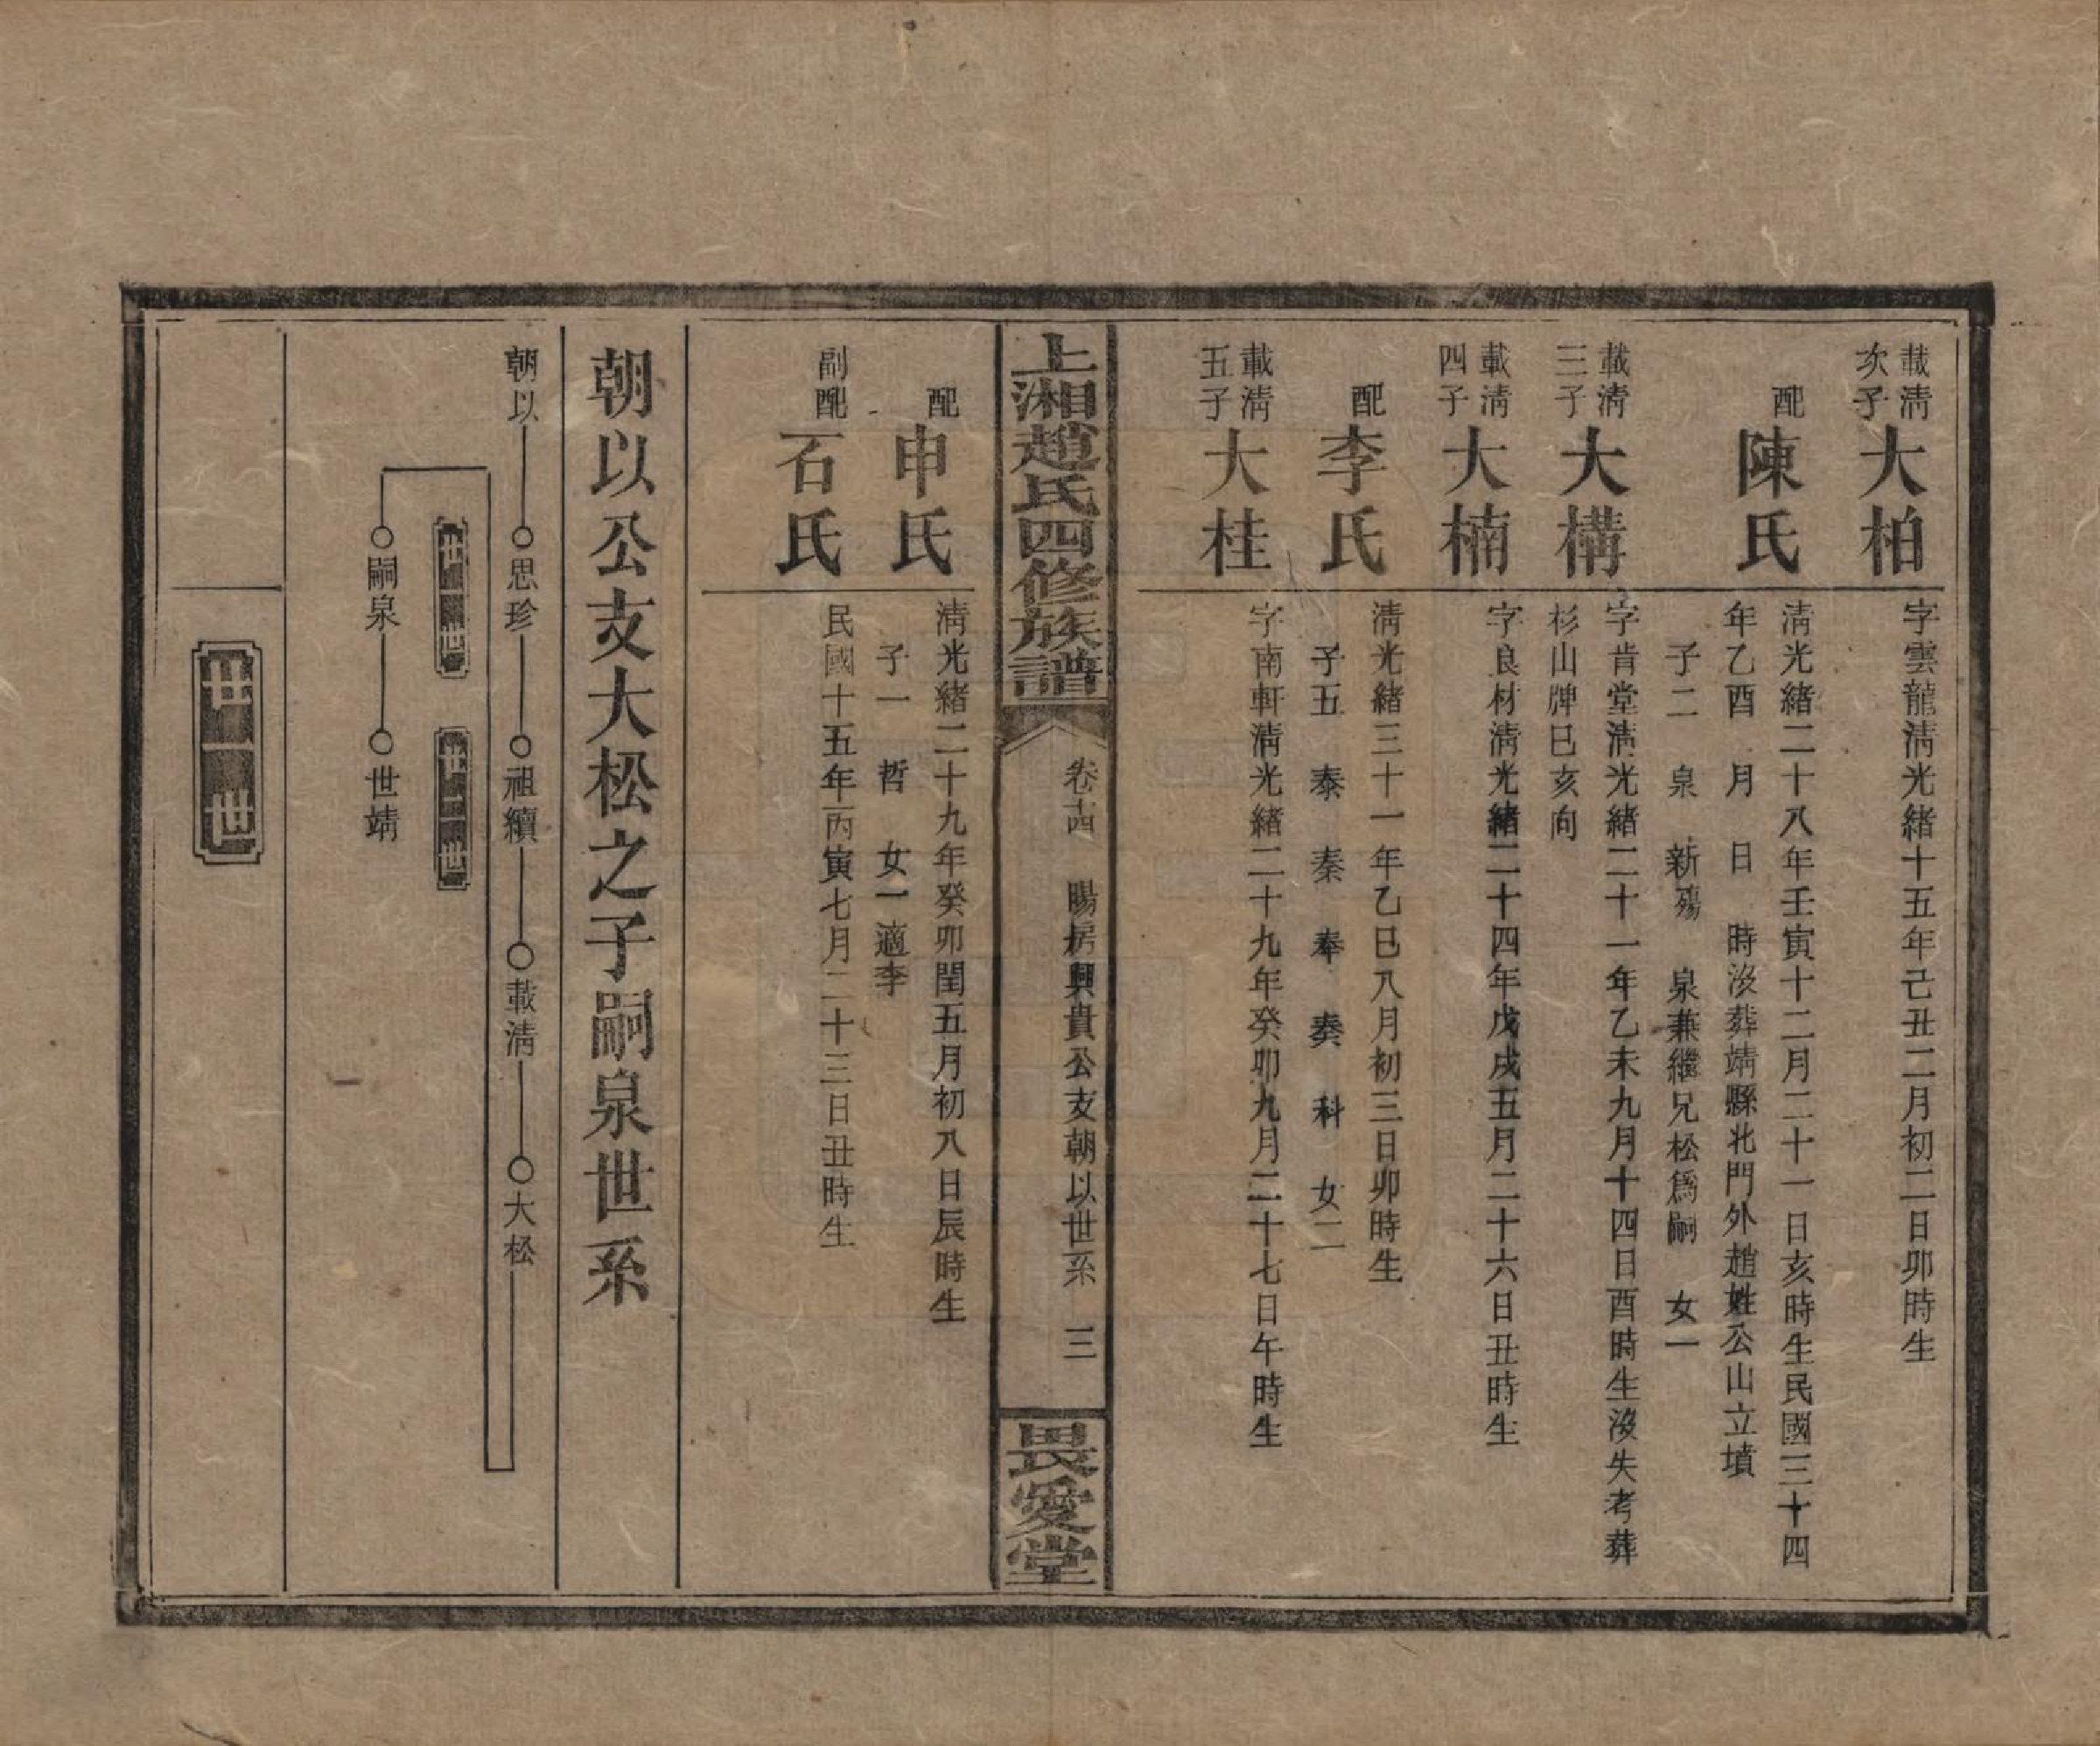 載淸
次子
大柏
字雲龍淸光緒十五年己丑二月初二日卯時生
配
陳氏
淸光緒二十八年壬寅十二月二十一日亥時生民國三十四
年乙酉　月　日　時沒葬靖縣北門外趙姓公山立墳
子二　泉　新殤　泉兼繼兄松爲嗣　女一
載淸
三子
大構
字肯堂淸光緒二十一年乙未九月十四日酉時生沒失考葬
杉山牌巳亥向
載淸
四子
大楠
字良材淸光緒二十四年戊戌五月二十六日丑時生
配
李氏
淸光緒三十一年乙巳八月初三日卯時生
子五　泰　秦　奉　奏　科　女二
載淸
五子
大桂
字南軒淸光緒二十九年癸卯九月二十七日午時生
上湘趙氏四修族譜
卷十四　暘房興貴公支朝以世系　三
畏愛堂
配
申氏
淸光緒二十九年癸卯閏五月初八日辰時生
子一　哲　女一適李
副配
石氏
民國十五年丙寅七月二十三日丑時生
朝以公支大松之子嗣泉世系
朝以　思珍　祖續　載淸　大松
世一世　世二世
嗣泉　世靖
世一世